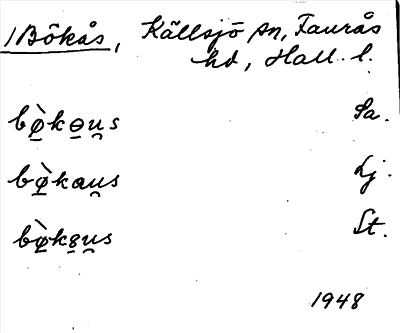 1 Bökås, Källsjö sn, Faurås
hd, Hall. l.
bø̀kɵu̯s Sa.
bø̀kau̯s Lj.
bø̀k8u̯s St.
1948